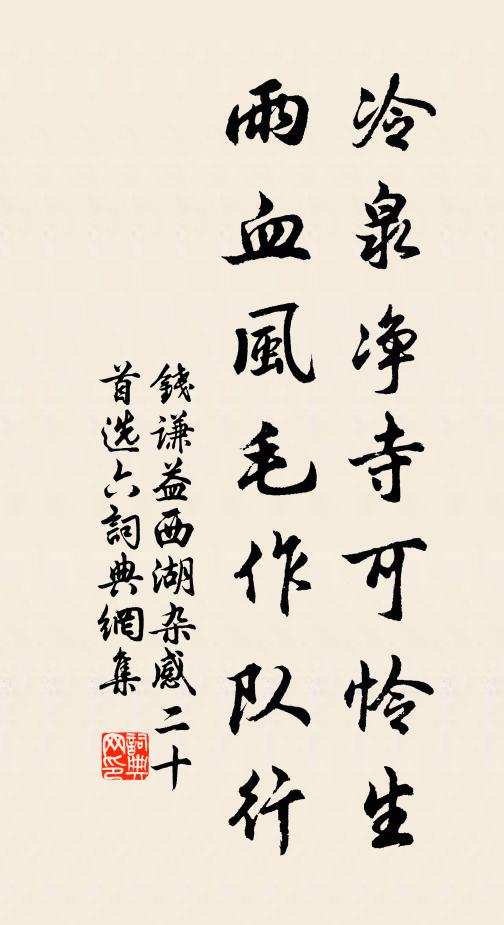 冷泉净寺可怜生
雨血風毛作队行
錢谦益西湖杂感二十
首选六詞典網集
詞典网印